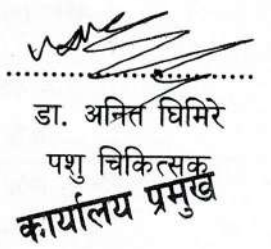 डा. अनित घिमिरे
पशु चिकित्सक
कार्यालय प्रमुख